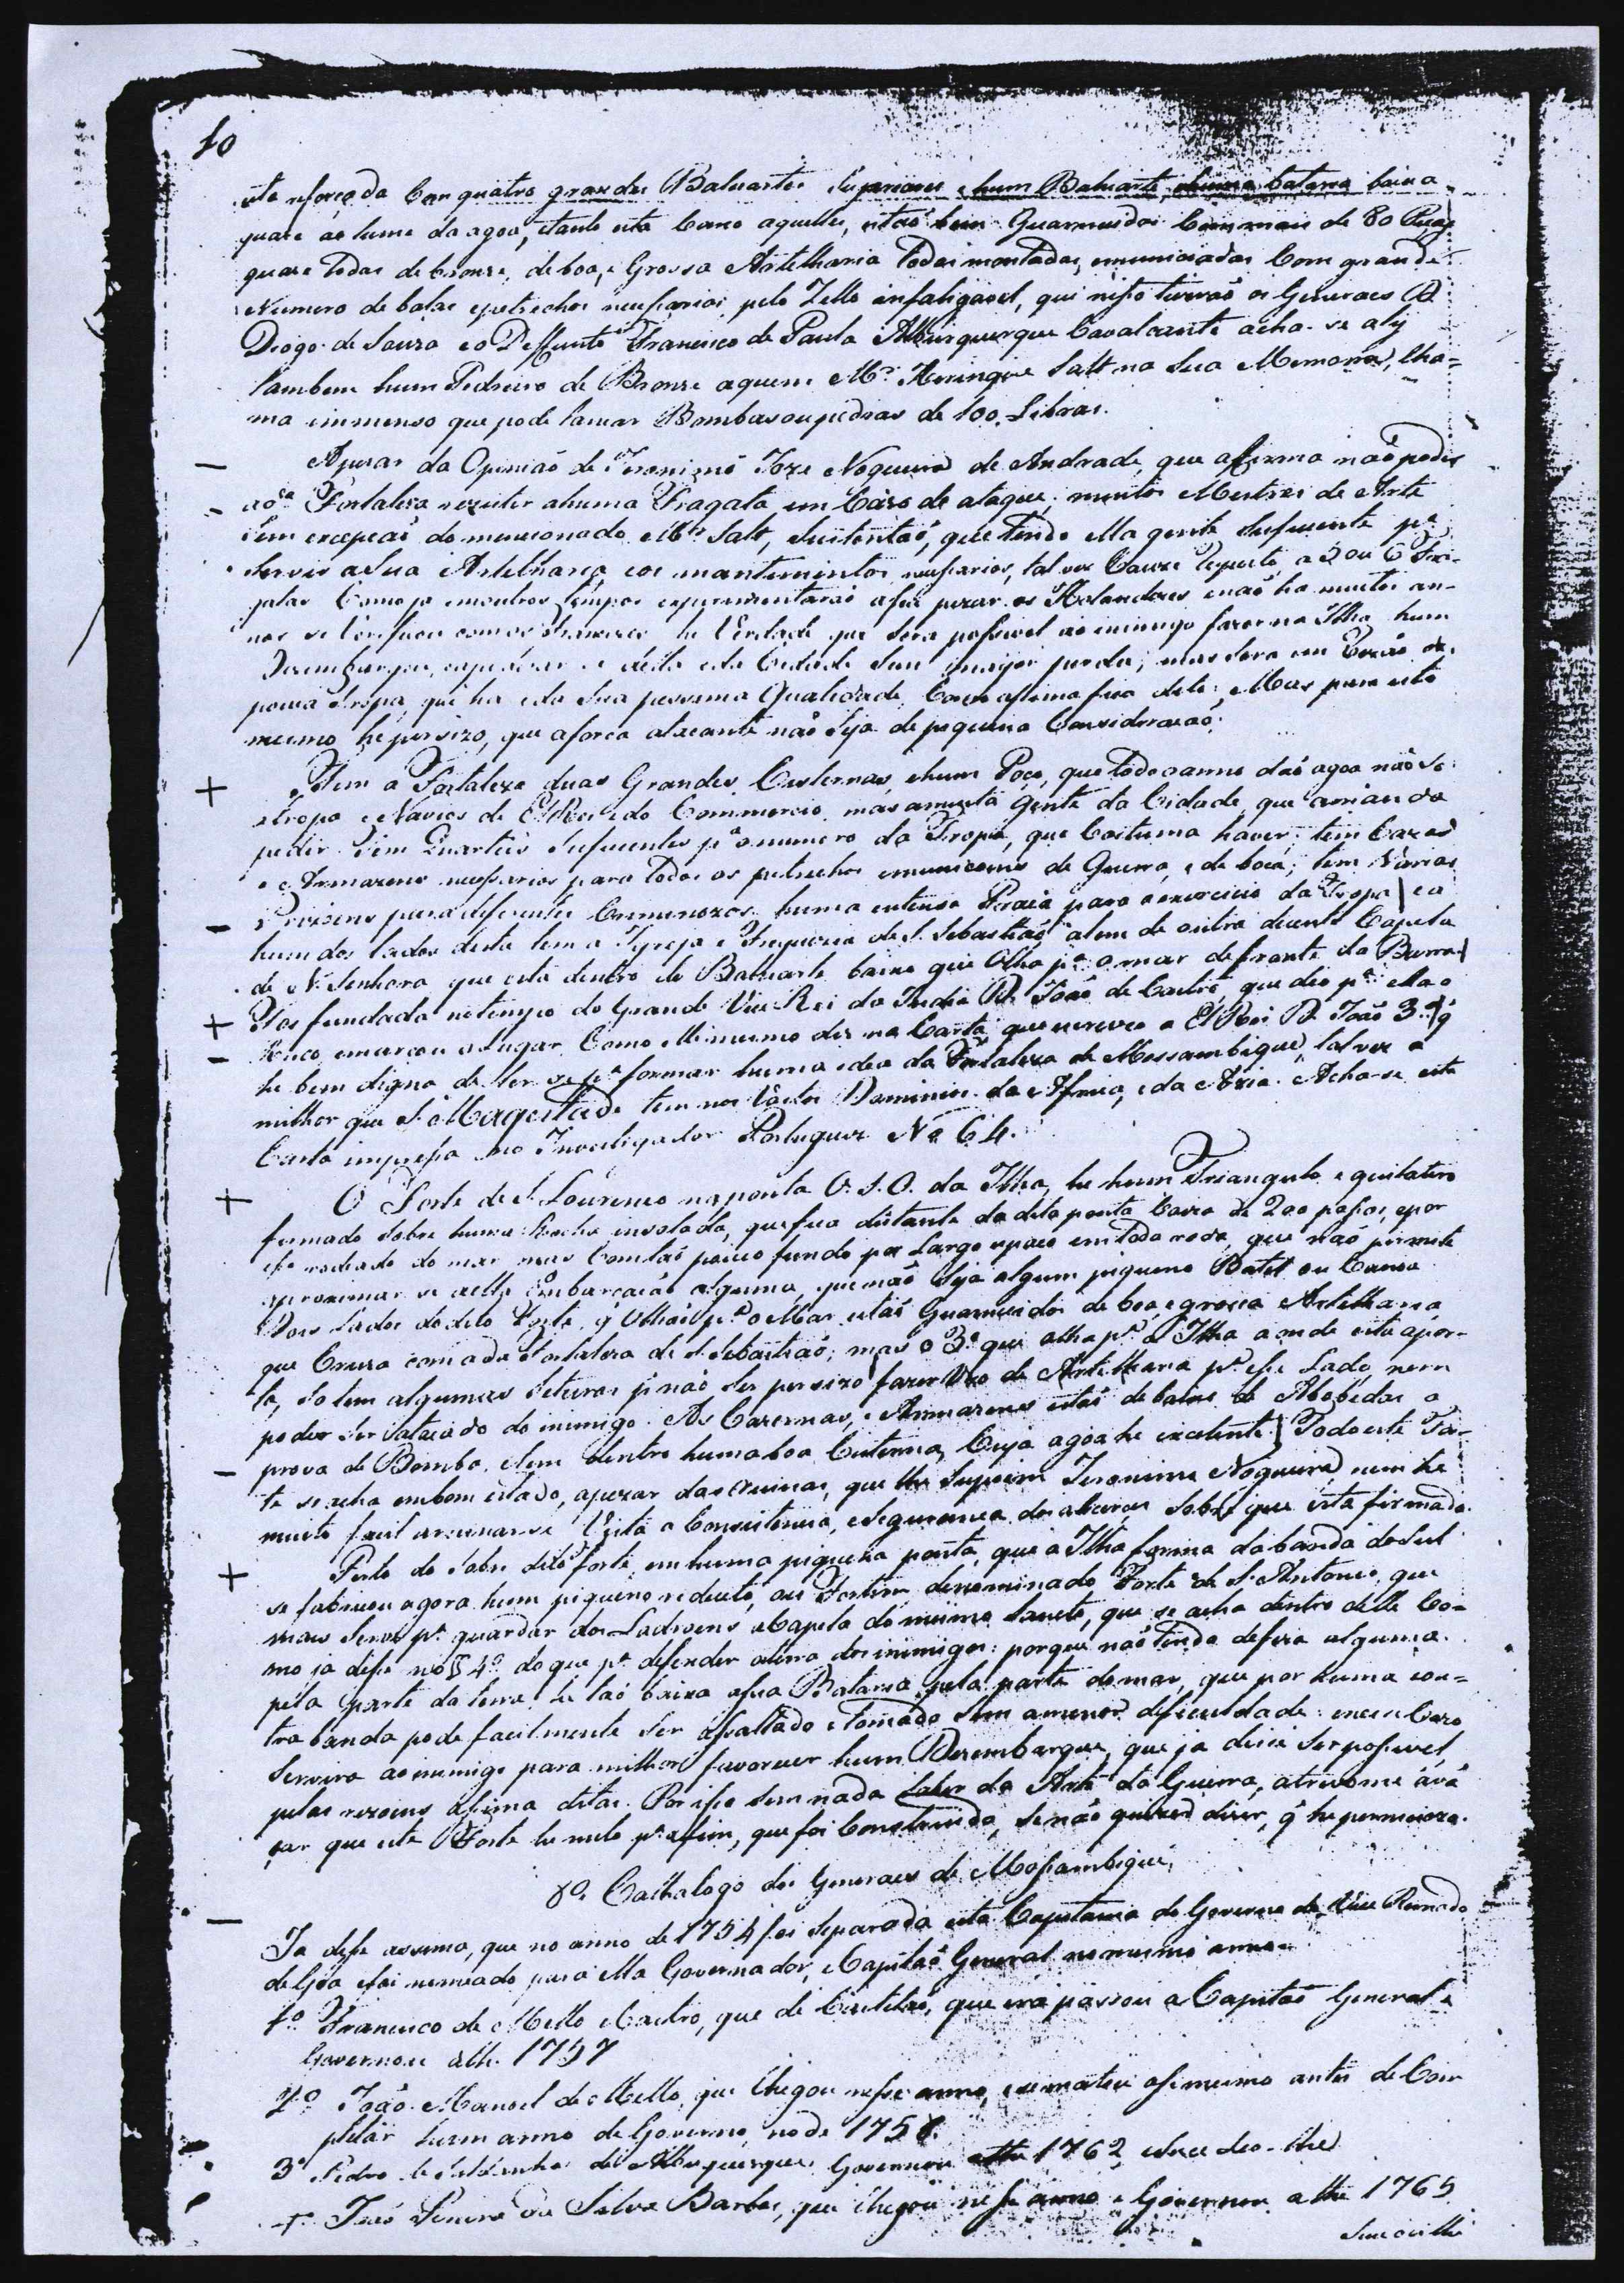 10
está reforçada Com quatro grandes Baluartes Superiores e hum Baluarte, e huma bataria baixa
quaze ao lume da agoa, e tanto esta Como aquelles, estaõ bem Guarnecidos Com mais de 80 Peças
quaze todas de bronze, de boa, e Grossa Artelharia todas montadas, e municiadas Com grande
Numero de balas e petrechos necessarios pelo Zello infatigavel, que nisso tiveraõ os Generaes D.
Diogo de Souza e o Deffunto Francisco de Paula Albuquerque Cavalcante acha-se aly
tambem hum Pedreiro de Bronze a quem Mr. Henrique Salt na Sua Memoria, cha=
ma immenso que pode lancar Bombas ou pedras de 100 Libras.
— Apezar da Opiniaõ de Jeronimo Joze Nogueira de Andrade, que afirma naõ poder
a dª Fortaleza rezistir a huma Fragata em Cazo de ataque; muitos Mestres de Arte
Sem excepçaõ do mencionado Mr. Salt, Sustentaõ, que tendo ella gente Sufficiente pª
Servir a Sua Artelharia, e os mantimentos necessarios, talvez Cauze respeito a 5 ou 6 Fra-
gatas Como ja em outros tempos experimentaraõ a seu pezar os Holandezes e naõ ha muitos an-
nos se Verificou com os Francezes he Verdade que Sera possivel ao inimigo fazer na Ilha hum
Dezembarque, e apoderar-se desta Cidade Sem mayor perda; mas Sera em razaõ da
pouca Tropa, que ha e da Sua pessima Qualidade Como assima fica dito: Mas para isto
mesmo he percizo, que a forca atacante naõ Seja de pequena Consideracaõ.
+ Tem a Fortaleza duas Grandes Cisternas, e hum Poço, que todo o anno daõ agoa naõ Só
á tropa e Navios de ElRei e do Commercio, mas a muita Gente da Cidade, que a manda
pedir. Tem Quarteis Sufficientes pª o numero da Tropa, que Costuma haver; tem Cazas
e Armazens necessarios para todos os petrechos e municoens de Guerra, e de boca; tem Varias
Prizoens para differentes Criminozos huma extensa Praia para o exercicio da Tropa | e a
— hum dos lados desta tem a Igreja e Freguezia de S. Sebastiaõ alem de outra decente Capela
de N. Senhora que está dentro do Baluarte baixo que Olha pª o mar defronte da Barra |
+ Foi fundada no tempo do Grande Vice Rei da India D. Joaõ de Castro, que deo pª ella o
— Risco, e marcou o Lugar Como Mesmo diz na Carta que escreveo a El Rei D. Joaõ 3º | q̃
he bem digna de ler-se pª formar huma idea da Fortaleza de Mossambique, talvez a
milhor que S. Magestade tem nos Vastos Dominios da Africa, e da Azia. Acha-se esta
Carta impressa no Investigador Portuguez Nº 64.
+ O Forte de S. Lourenco na ponta O. S. O. da Ilha, he hum Triangulo equilatero
formado Sobre huma Rocha insolada, que fica distante da dita ponta Couza de 200 passos, e por
isso rodeado do mar mas Com taõ pouco fundo por Largo espaco em toda roda, que naõ permite
aproximar-se delle Embarcacaõ alguma, que naõ Seja algum piqueno Batel ou Canoa
Dous Lados do dito Forte, q̃ Olhaõ pª o Mar estaõ Guarnecidos de boa, e grossa Artelharia
que Cruza com a da Fortaleza de S. Sebastiaõ; mas o 3º que olha pª a Ilha a onde está a por-
ta, So tem algumas Seteiras p naõ Ser percizo fazer Uzo de Artelharia pª esse Lado, nem
poder Ser atacado do inimigo. As Cazernas, e Armazens estaõ debaixo de Abobedas a
prova de Bomba, e tem dentro huma boa Cisterna, Cuja agoa he excelente. | Todo este For-
— te se acha em bom estado, apezar das ruinas, que lhe Supoem Jeronimo Nogueira, nem he
muito facil arruinar-se Vista a Consistencia, e Seguranca dos alicerses Sobre que está firmado.
+ Perto do Sobre dito forte, em huma piquena ponta, que a Ilha forma da banda do Sul
se fabricou agora hum piqueno reducto, ou Fortim denominado Forte de S. Antonio, que
mais Serve pª guardar dos Ladroens a Capela do mesmo Sancto, que se acha dentro delle Co-
mo ja disse no § 4º, do que pª defender a terra dos inimigos: porque naõ tendo defeza alguma
pela parte da terra he taõ baixa a sua Bataria pela parte do mar, que por huma e ou=
tra banda pode facilmente Ser assaltado e tomado Sem a menor dificuldade: e nesse Cazo
Servira ao inimigo para milhor favorecer hum Dezembarque, que ja disse Ser possivel,
pelas rezoens assima ditas. Por isso Sem nada Saber da Arte da Guerra, atrevo-me ává
çar que este Forte he nulo pª o fim, que foi Construido, Se naõ quizer dizer, q̃ he pernicioza.
8º Cathalogo dos Generaes de Mossambique.
— Ja disse assima, que no anno de 1754 foi Separada esta Capitania do Governo do Vice Reinado
de Goa e foi nomeado para ella Governador, e Capitaõ General no mesmo anno.
1º Francisco de Mello e Castro, que de Castelaõ, que era passou a Capitaõ General e
Governou athe 1757
2º Joaõ Manoel de Mello, que Chegou nesse anno, e se matou a si mesmo antes de Com
pletar hum anno de Governo, no de 1758.
3º Pedro de Saldanha de Albuquerque, Governou athe 1762, e Succedeo-lhe
4º Joaõ Pereira da Silva Barba, que Chegou nesse anno e Governou athe 1765
Succedeo lhe